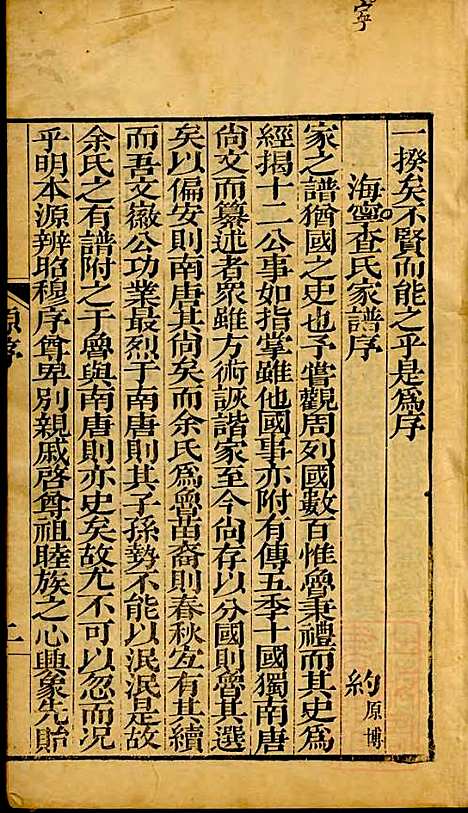 寧
一揆矣不賢而能之乎是為序
海寧查氏家譜序
約原博
家之譜猶國之史也予嘗觀周列國數百惟魯秉禮而其史為
經揭十二公事如指掌雖他國事亦附有傳五季十國獨南唐
尚文而纂述者眾雖方術詼諧家至今尚存以分國則魯其選
矣以偏安則南唐其尚矣而余氏為魯苗裔則春秋宜有其續
而吾文徽公功業最烈于南唐則其子孫勢不能以泯泯是故
余氏之有譜附之于魯與南唐則亦史矣故尤不可以忽而况
乎明本源辨昭穆序尊卑別親戚啓尊祖睦族之心興象先貽
原序
二